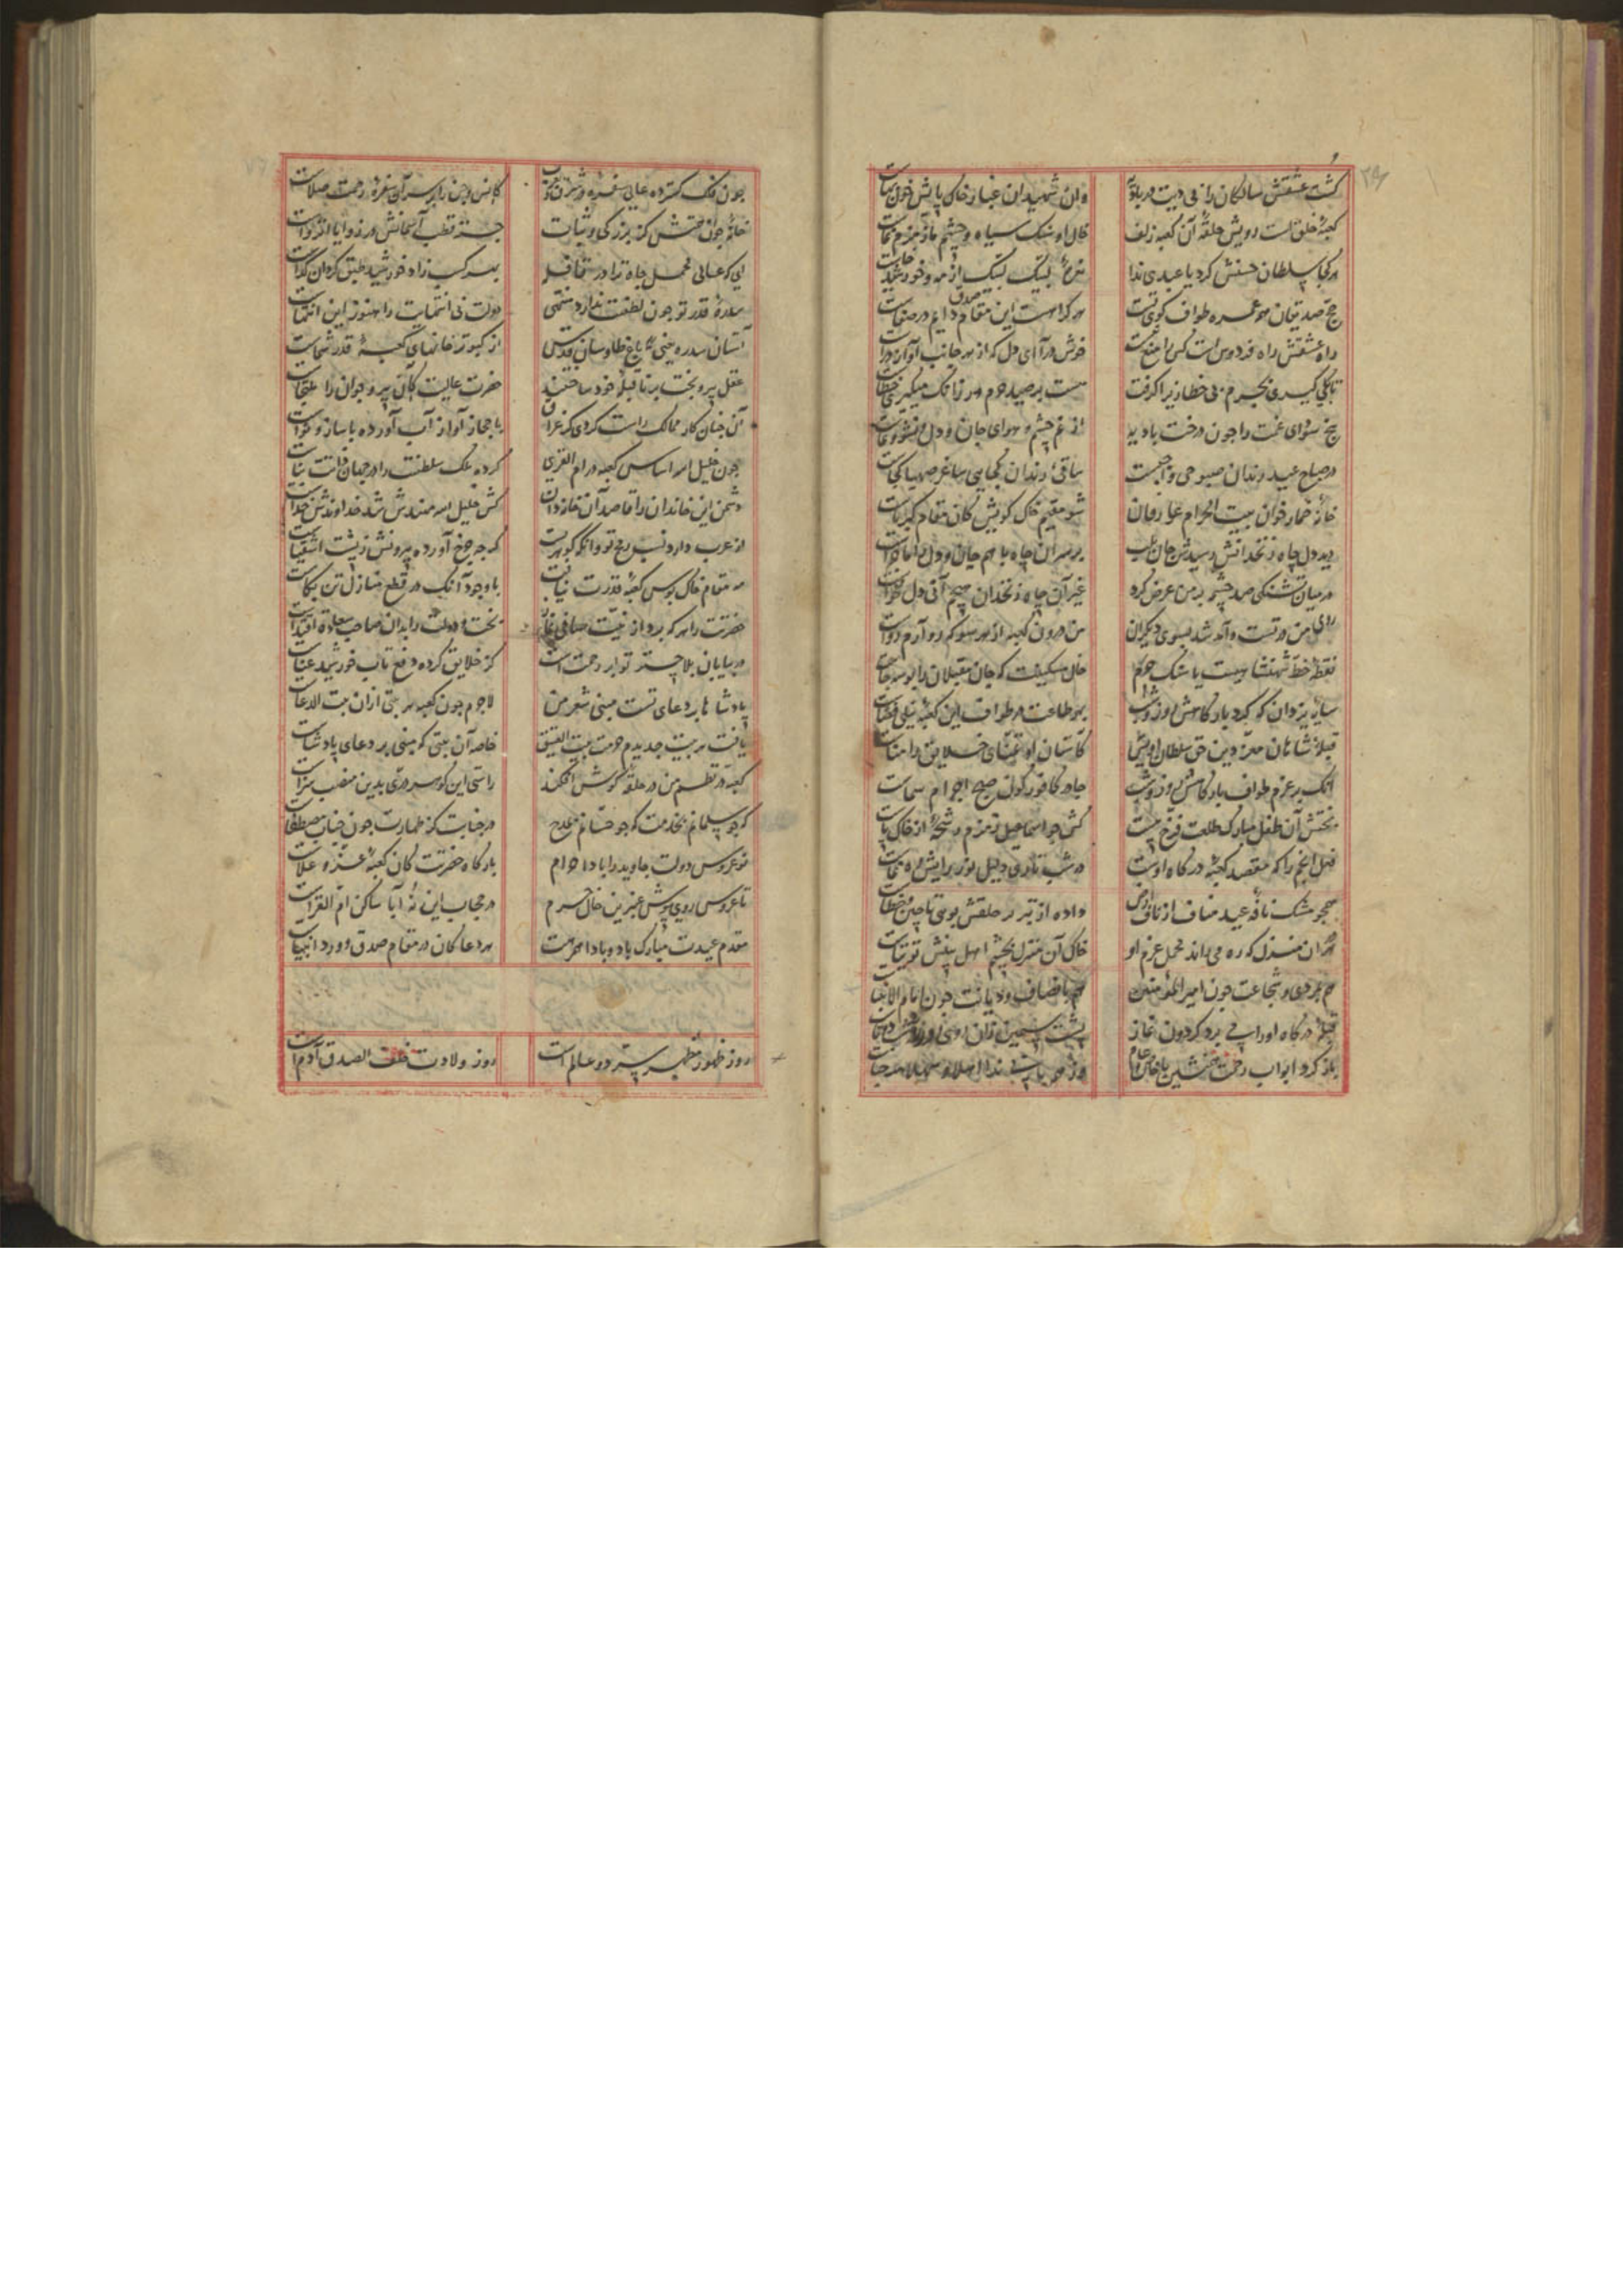 کشت عشقش سالکان را نی دیت در بادیه وان شهیدان غبار خاک پایش خون بهاست
کعبهٔ خلق است رویش حلقهٔ آن کعبه زلف خال او سنگ سیاه و چشم ما زمزم نماست
هر کجا سلطان حسنش کرد یا عبدی ندا نعرهٔ لبیک لبیک از مه و خورشید خاست
حج صدیقان مو عمره طواف کوی تست هر کرا هست این مقام صدق دایم در صفاست
راه عشقش راه فردوس است کس را منع نیست خوش درآ ای دل که از هر جانب آواز دراست
تا بکی گیری بجرم بی خطا زیرا گرفت نیست بر صید حرم هر زانک میگیری خطاست
بیخ سودای غمت را چون درخت بادیه از غم چشم و هوای جان و دل نشو و نماست
در صباح عید رندان صبوحی واجبست ساقی رندان کجایی ساغر صهبا کجاست
خانهٔ خمار خوان بیت الحرام عارفان شو مقیم خاک کویش کان مقام کبریاست
دید دل چاه زنخدانش رسیدش جان بلب بر سر آن چاه با هم جان و دل را ماجراست
در میان تشنگی صد چشمه بر من عرض کرد غیر آن چاه زنخدان هیچم آبی دل نخواست
روی من در تست و آمد شد بسوی دیگران من درون کعبه از هر سو که رو آرم رواست
نقطهٔ خط شهنشاهیست یا سنگ حرم خال مسکینت که جان مقبلان را بوسه جاست
سایهٔ یزدان که گرد بارگاهش روز و شب بهر طاعت در طواف این کعبهٔ نیلی قباست
قبلهٔ شاهان معز دین حق سلطان اویس کاستان او تمنای خلایق را مناست
آنک بر عزم طواف بارگاهش روز و شب جامه کافور گون صبح احرام سماست
بختش آن طفل مبارک طلعت فرخ پیست کش چو اسماعیل زمزم رشحهٔ از خاک پاست
خیل انجم را که مقصد کعبهٔ درگاه اوست در شب تاری دلیل نور رایش ره نماست
همچو مشک نافهٔ عبد مناف از ناف ارض داده از تبر در خلقش بوی تا چین و خطاست
هر آن منزل که ره می‌راند محمل عزم او خاک آن منزل بچشم اهل بینش توتیاست
هم بمردی و شجاعت چون امیر المؤمنین هم بانصاف و دیانت چون امام الانبیاست
قبلهٔ درگاه او را می برد گردون نماز
باز کرد ابواب رحمت بخششش بر خاص و عام
چون فلک گسترده عالی سفره و شرق و غرب کانس و جن را بر سر آن سفرهٔ رحمت صلاست
خانهٔ چون نقش کز بزرگی و ثبات جز قطب آسمانش در زوایا انزواست
ای که عالی محمل جاه ترا در قافله بر سر کسب زاد خورشید طبق گردان گداست
سدرهٔ قدر تو چون لطفت ندارد منتهی دولت بی انتهایت را هنوز این ابتداست
آستان سدره یعنی باغ طاوسان قدس از کبوتر خانهای کعبهٔ قدر شماست
عقل پیر و بخت برنا قبلهٔ خود ساختند حضرت عالیت کان پیر و جوان را ملتجاست
آن چنان کار ممالک راست کردی کز عراق تا حجاز آواز آب آورده با ساز و نواست
چون خلیل الله اساس کعبه در ام القری کرده ملک سلطنت را در جهان ذاتت بناست
دشمن این خاندان را قاصد آن خانه دان کش خلیل الله مهندس شد خداوندش خداست
از عرب دارد نسب رمح تو وانگه گوهریست که چرخ آورده بیرونش ز پشت اشقیاست
در مقام خاک بوس کعبهٔ قدرت نیافت با وجود آنک در قطع منازل تن بکاست
حضرتت را هر که برد از نیت صافی نماز بخت و دولت را بدان صاحب سعادت اقتداست
در بیابان بلا چتر تو ابر رحمت است کز خلایق کرده دفع تاب خورشید عناست
پادشاها بر دعای تست مبنی شعر من لاجرم چون کعبه هر بیتی ازان بیت الدعاست
یافت هر بیت جدیدم حرمت بیت العتیق خاصه آن بیتی که مبنی بر دعای پادشاست
کعبه در نظم من در حلقه گوش افکند راستی این گوهر دری بدین منصب سزاست
گر چو سلمانم بخدمت گر چو حسانم بمدح در جنابت کز طهارت چون جناب مصطفاست
نو عروس دولت جاوید را بادا حرام بارگاه حضرتت کان کعبهٔ عز و علاست
تا عروس روی پوش عنبرین خال حرم در حجاب این نه آبا ساکن ام القراست
مقدم عیدت مبارک باد و بادا همرهت هر دعا کان در مقام صدق ورد انبیاست
روز ظهور مظهر سر دو عالم است روز ولادت خلف الصدق آدم است